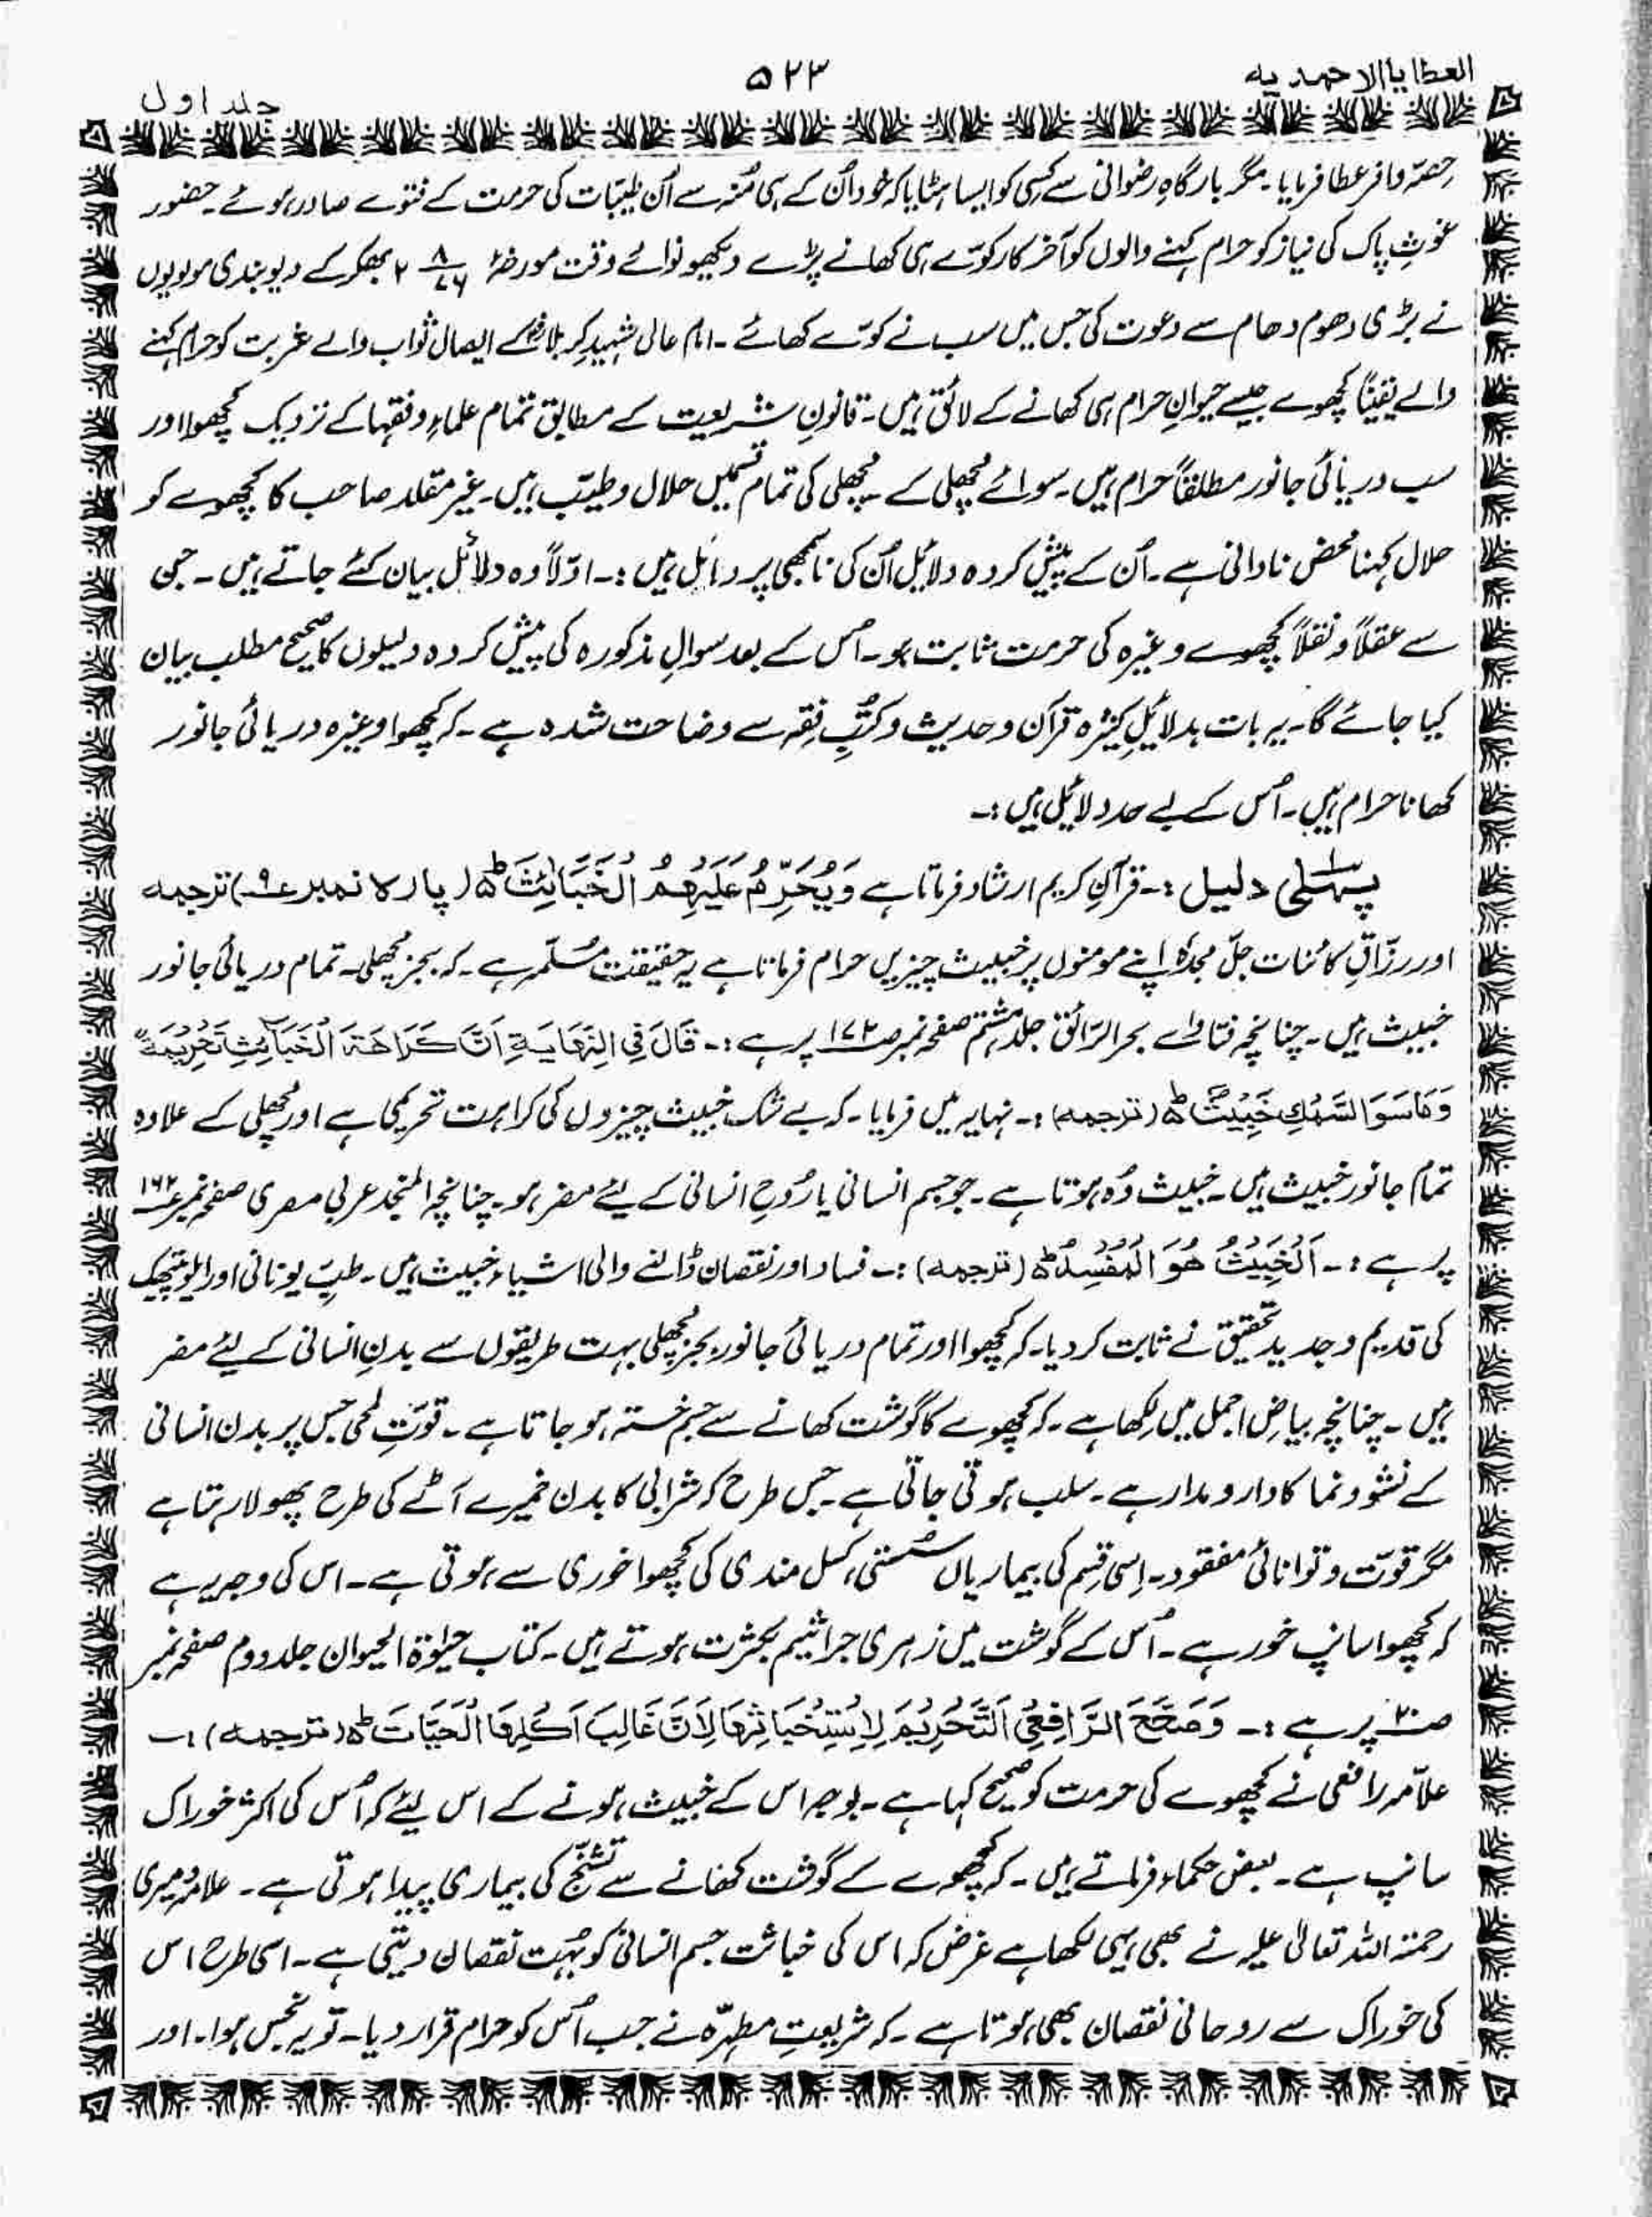 العطایا الاحمدیہ
۵۲۳
جلد اول
حصّہ وافر عطا فرمایا۔ مگر بارگاہِ رضوانی سے کسی کو ایسا ہٹایا کہ خود اُن کے ہی مُنہ سے اُن طیبّات کی حرمت کے فتوے صادر ہوئے۔ حضور
غوثِ پاک کی نیاز کو حرام کہنے والوں کو آخر کار کوّے ہی کھانے پڑے دیکھو نوائے وقت مورخہ ۲ ۸/۷۶ بھکر کے دیوبندی مولویوں
نے بڑی دھوم دھام سے دعوت کی جس میں سب نے کوّے کھائے۔ امام عالی شہیدِ کربلا کے ایصالِ ثواب والے شربت کو حرام کہنے
والے یقیناً کچھوے جیسے حیوانِ حرام ہی کھانے کے لائق ہیں۔ قانونِ شریعت کے مطابق تمام علماء و فقہا کے نزدیک کچھوا اور
سب دریائی جانور مطلقاً حرام ہیں۔ سوائے مچھلی کے۔ مچھلی کی تمام قسمیں حلال و طیّب ہیں۔ غیر مقلد صاحب کا کچھوے کو
حلال کہنا محض نادانی ہے۔ اُن کے پیش کردہ دلائل اُن کی ناسمجھی پر دال ہیں :۔ اوّلاً وہ دلائل بیان کئے جاتے ہیں۔ جن
سے عقلاً و نقلاً کچھوے وغیرہ کی حرمت ثابت ہو۔ اُس کے بعد سوالِ مذکورہ کی پیش کردہ دلیلوں کا صحیح مطلب بیان
کیا جائے گا۔ یہ بات بدلائلِ کثیرہ قرآن و حدیث و کتبِ فقہ سے وضاحت شدہ ہے۔ کہ کچھوا وغیرہ دریائی جانور
کھانا حرام ہیں۔ اُس کے بے حد دلائل ہیں :۔
پہلی دلیل :۔ قرآنِ کریم ارشاد فرماتا ہے وَيُحَرِّمُ عَلَيْهِمُ الْخَبَائِثَ ط (پارہ نمبر ۹) ترجمہ
اور رزّاقِ کائنات جلّ مجدہٗ اپنے مومنوں پر خبیث چیزیں حرام فرماتا ہے یہ حقیقت مُسلّمہ ہے۔ کہ بجز مچھلی۔ تمام دریائی جانور
خبیث ہیں۔ چنانچہ فتاوٰے بحر الرّائق جلد ہشتم صفحہ نمبر ص۱۷۲ پر ہے :۔ قَالَ فِي النِّهَايَةِ اَنَّ كَرَاهَةَ الْخَبَائِثِ تَحْرِيْمَةٌ
وَمَا سَوَا السَّمَكِ خَبِيْثٌ ط (ترجمہ) :۔ نہایہ میں فرمایا۔ کہ بے شک خبیث چیزوں کی کراہت تحریمی ہے اور مچھلی کے علاوہ
تمام جانور خبیث ہیں۔ خبیث وُہ ہوتا ہے۔ جو جسم انسانی یا رُوحِ انسانی کے لیئے مضر ہو۔ چنانچہ المنجد عربی مصری صفحہ نمبر ۱۶۲
پر ہے :۔ اَلْخَبِيْثُ هُوَ الْمُفْسِدُ ط (ترجمہ) :۔ فساد اور نقصان ڈالنے والی اشیاء خبیث ہیں۔ طبِ یونانی اور ایلوپتھیک
کی قدیم و جدید تحقیق نے ثابت کر دیا۔ کہ کچھوا اور تمام دریائی جانور بجز مچھلی بہت طریقوں سے بدنِ انسانی کے لیئے مضر
ہیں۔ چنانچہ بیاضِ اجمل میں لکھا ہے۔ کہ کچھوے کا گوشت کھانے سے جسم خستہ ہو جاتا ہے۔ قوتِ لحمی جس پر بدن انسانی
کے نشوونما کا دارومدار ہے۔ سلب ہوتی جاتی ہے۔ جس طرح کہ شرابی کا بدن خمیرے آٹے کی طرح پھولا رہتا ہے
مگر قوّت و توانائی مفقود۔ اِسی قِسم کی بیماریاں سُستی، کسل مندی کی کچھوا خوری سے ہوتی ہے۔ اس کی وجہ یہ ہے
کہ کچھوا سانپ خور ہے۔ اُس کے گوشت میں زہری جراثیم بکثرت ہوتے ہیں۔ کتاب حیٰوۃ الحیوان جلد دوم صفحہ نمبر
ص۲۰ پر ہے :۔ وَصَحَّحَ الرَّافِعِيُّ اَلتَّحْرِيْمَ لِاِسْتِخْبَاثِهَا لِاَنَّ غَالِبَ اَكْلِهَا الْحَيَّاتَ ط (ترجمہ) :۔
علاّمہ رافعی نے کچھوے کی حرمت کو صحیح کہا ہے۔ بوجہ اس کے خبیث ہونے کے اس لیئے کہ اُس کی اکثر خوراک
سانپ ہے۔ بعض حکماء فرماتے ہیں۔ کہ کچھوے کے گوشت کھانے سے تشنّج کی بیماری پیدا ہوتی ہے۔ علامہ دمیری
رحمتہ اللہ تعالیٰ علیہ نے بھی یہی لکھا ہے غرض کہ اس کی خباثت جسم انسانی کو بہُت نقصان دیتی ہے۔ اسی طرح اس
کی خوراک سے روحانی نقصان بھی ہوتا ہے۔ کہ شریعتِ مطہرّہ نے جب اُس کو حرام قرار دیا۔ تو یہ نجس ہوا۔ اور